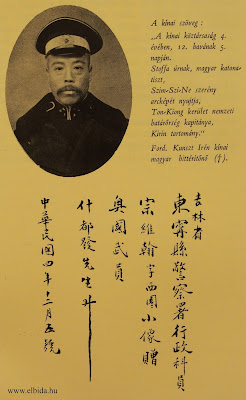 A kínai szöveg:
„A kínai köztársaság 4.
évében, 12. hardnak 5.
napján.
Stoffa úrnak, magyar katona-
tiszt,
Szim-Szi-Ne szerény
arcképét nyujtja,
Ton-Kiong kerület nemzeti
határőrség kapitánya,
Kirin tartomány.“
Ford. Kunszt Irén kínai
magyar hittérítőnő (†).
吉林省
東寧縣警察署行政科員
宗維翰字西園小像贈
奧國武員
什都發先生
中華民國四年十二月五號
www.elbida.hu